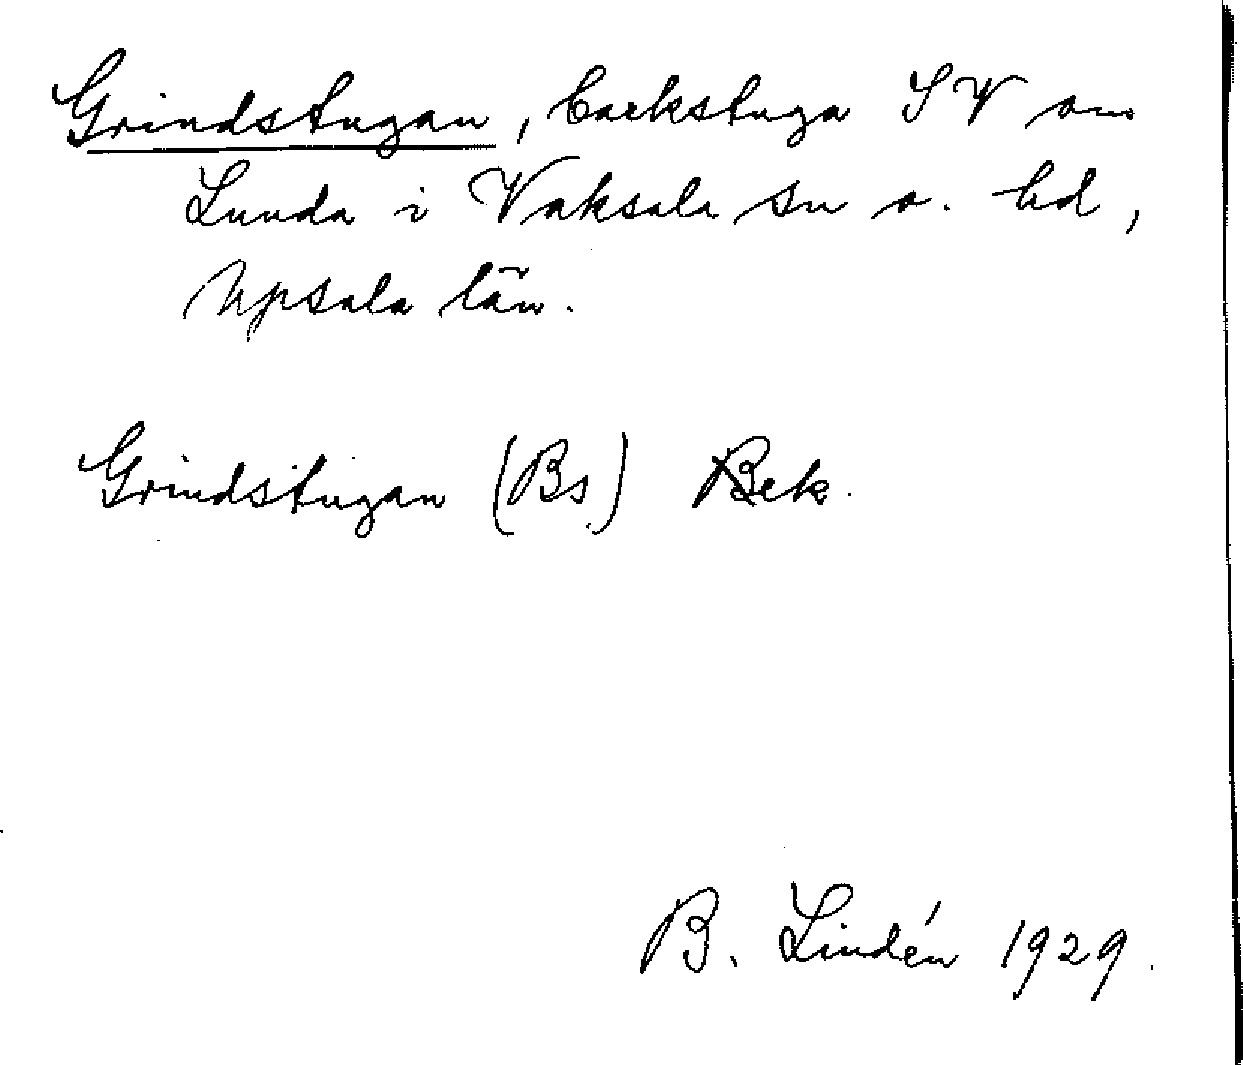 Grindstugan, backstuga SV om
Lunda i Vaksala sn o. hd,
Upsala län.
Grindstugan (Bs) Bek.
B. Lindén 1929.